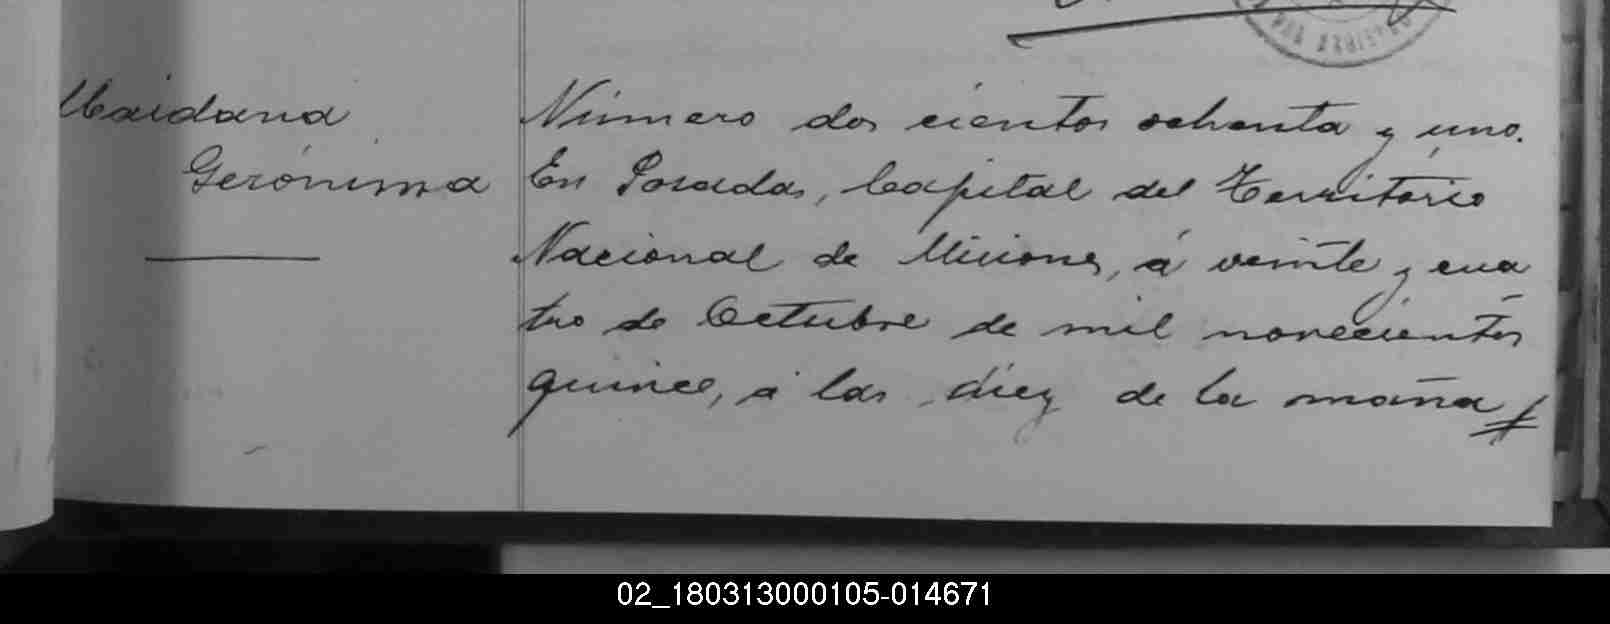 Maidana
Gerónima
Número dos cientos ochenta y uno.
En Posadas, Capital del Território
Nacional de Miciones, á veinte y cua
tro de Octubre de mil novecientos
quince, á las diez de la maña
02_180313000105-014671